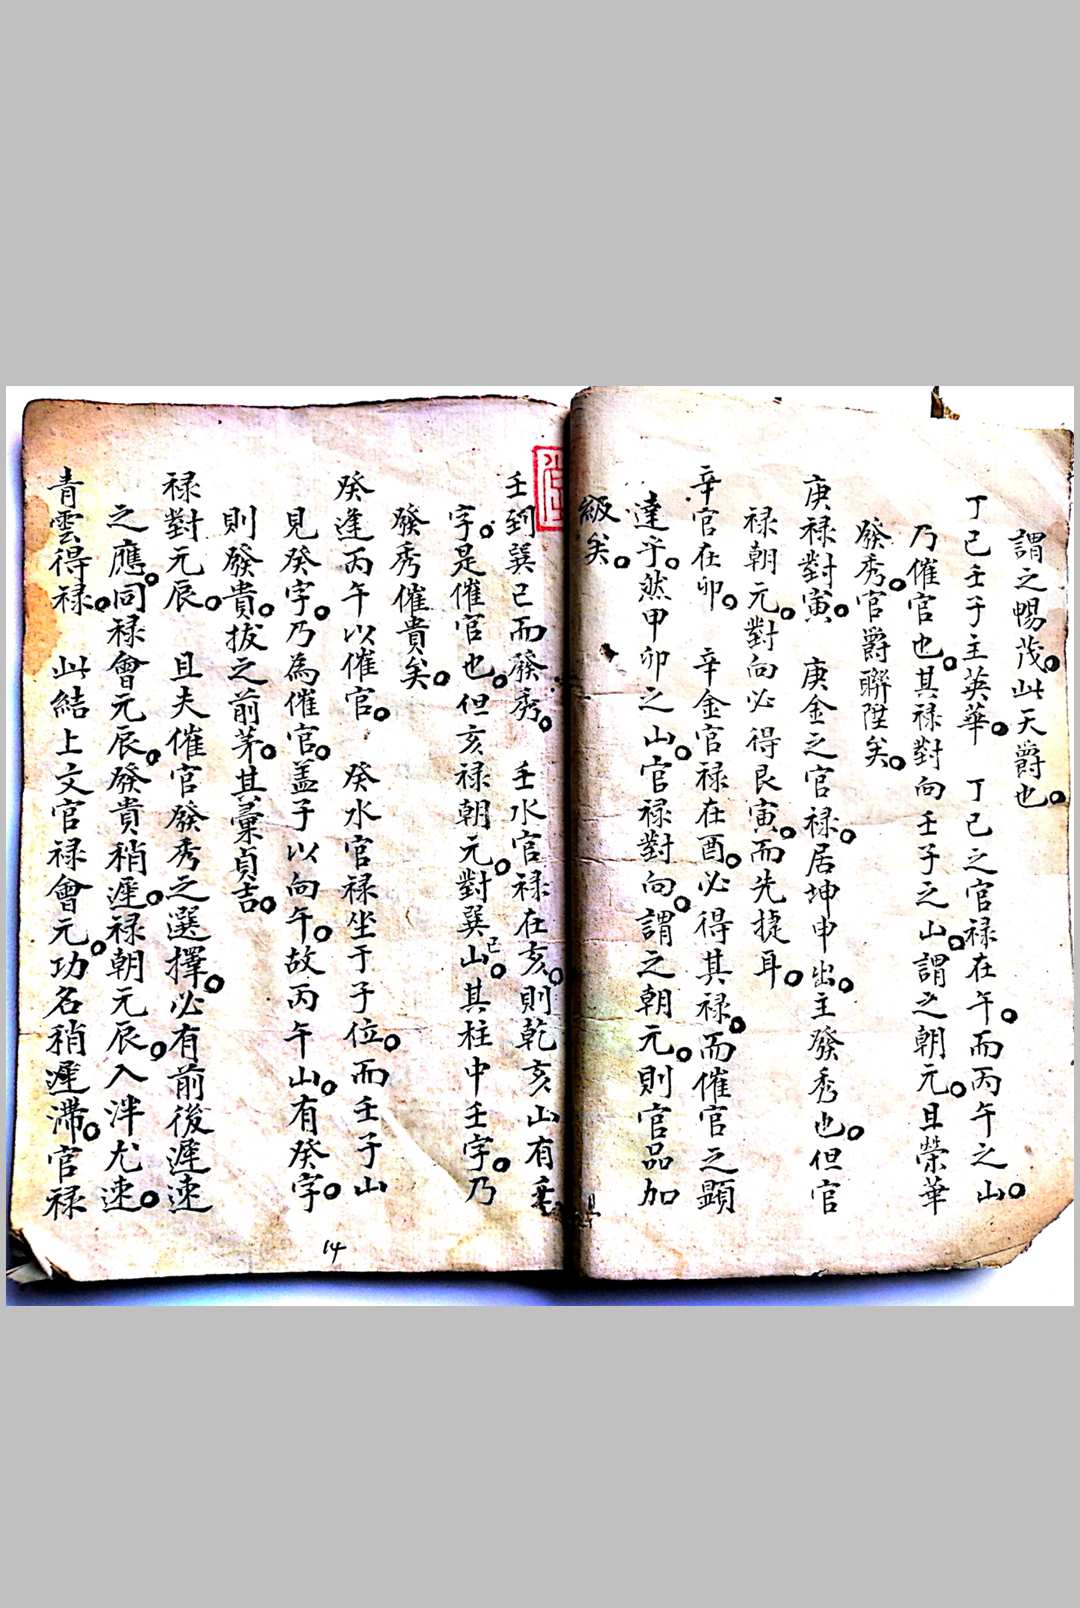 謂之暢茂此天爵也
丁己壬子主英華　丁己之官禄在午而丙午之山
乃催官也其禄對向壬子之山謂之朝元且榮華
發秀官爵聯陞矣
庚禄對寅　庚金之官禄居坤申出主發秀也但官
禄朝元對向必得艮寅而先捷耳
辛官在卯　辛金官禄在酉必得其禄而催官之顕
達乎然甲卯之山官禄對向謂之朝元則官品加
級矣
壬到巽已而發秀　壬水官禄在亥則乾亥山有壬
字是催官也但亥禄朝元對巽巳山其柱中壬字乃
發秀催貴矣
癸逢丙午以催官　癸水官禄坐于子位而壬子山
見癸字乃為催官盖子以向午故丙午山有癸字
則發貴拔之前茅其彙貞吉
禄對元辰　且夫催官發秀之選擇必有前後遲速
之應同禄會元辰發貴稍遲禄朝元辰入泮尤速
青雲得禄　此結上文官禄會元功名稍遲滯官禄
14